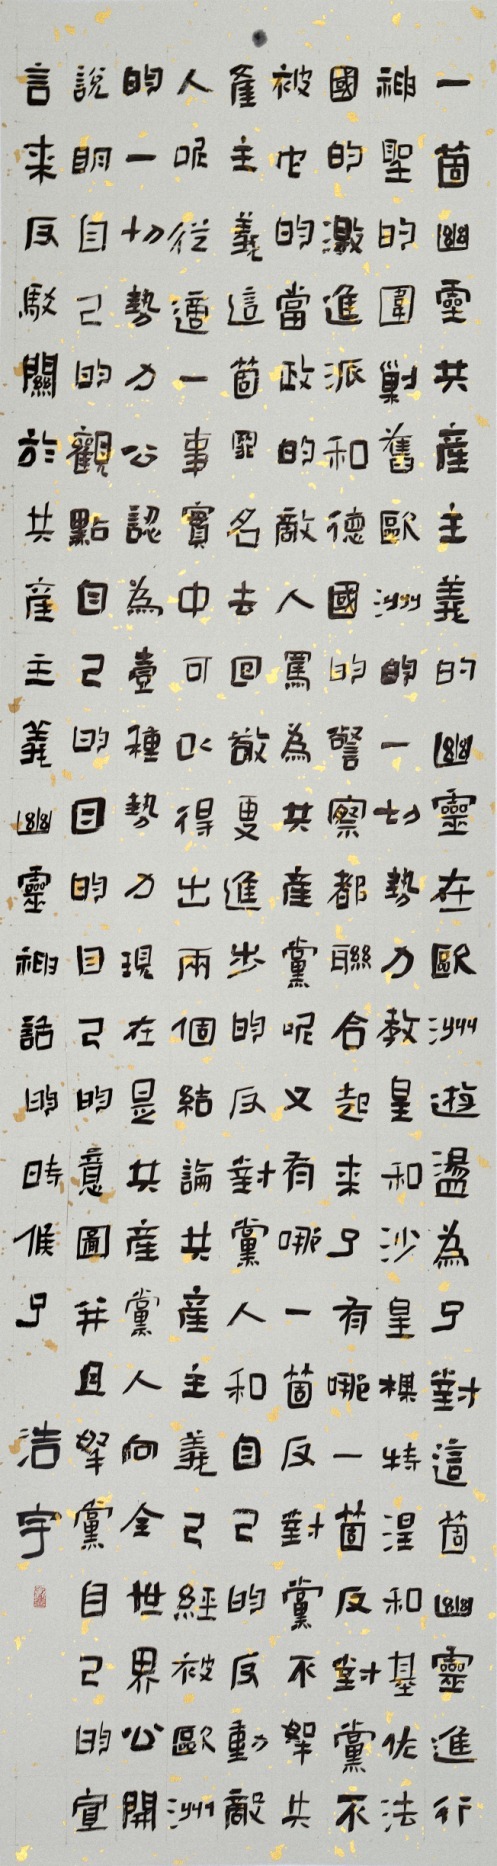 一箇幽靈共産主義的幽靈在歐洲遊盪為了對這箇幽靈進行
神聖的圍剿舊歐洲的一切勢力教皇和沙皇梅特涅和基佐法
國的激進派和德國的警察都聯合起来了有哪一箇反對黨不
被它的當政的敵人罵為共産黨呢又有哪一箇反對黨不拏共
産主義這箇罪名去回敬更進步的反對黨人和自己的反動敵
人呢從這一事實中可以得出兩個結論共産主義已經被歐洲
的一切勢力公認為壹種勢力現在是共産黨人向全世界公開
說明自己的觀點自己的目的自己的意圖并且拏黨自己的宣
言来反駁關於共産主義幽靈神話的時候了
浩宇